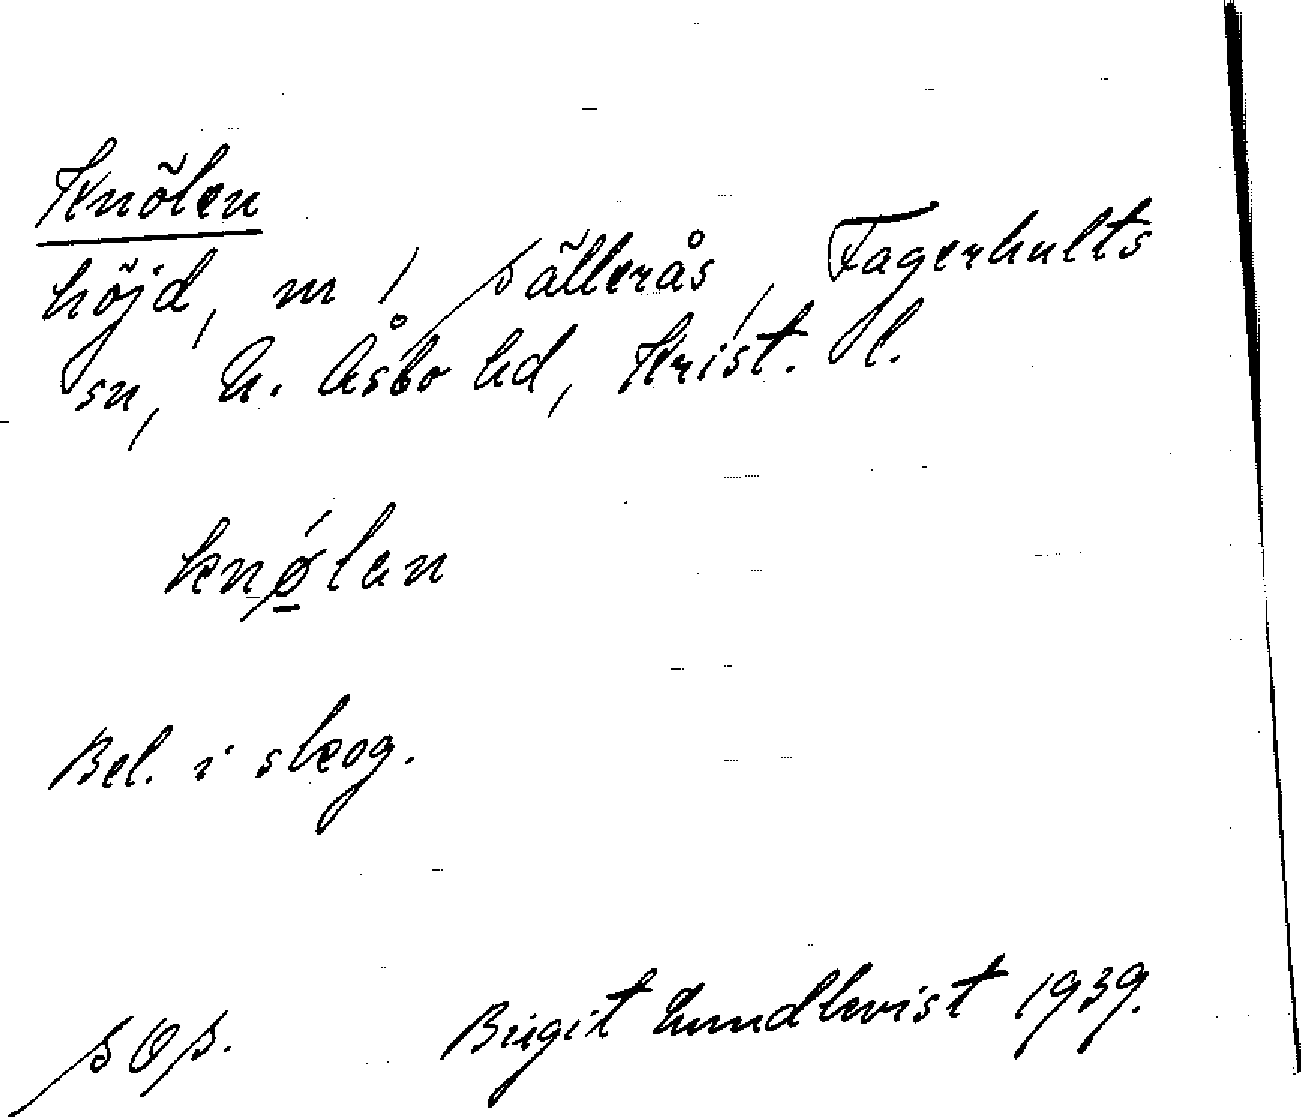 Knölen
höjd, m / Sällerås, Fagerhults
sn, N. Åsbo hd, Krist. l.
knǿ̱lan
Bel. i skog.
Birgit Lundkvist 1939.